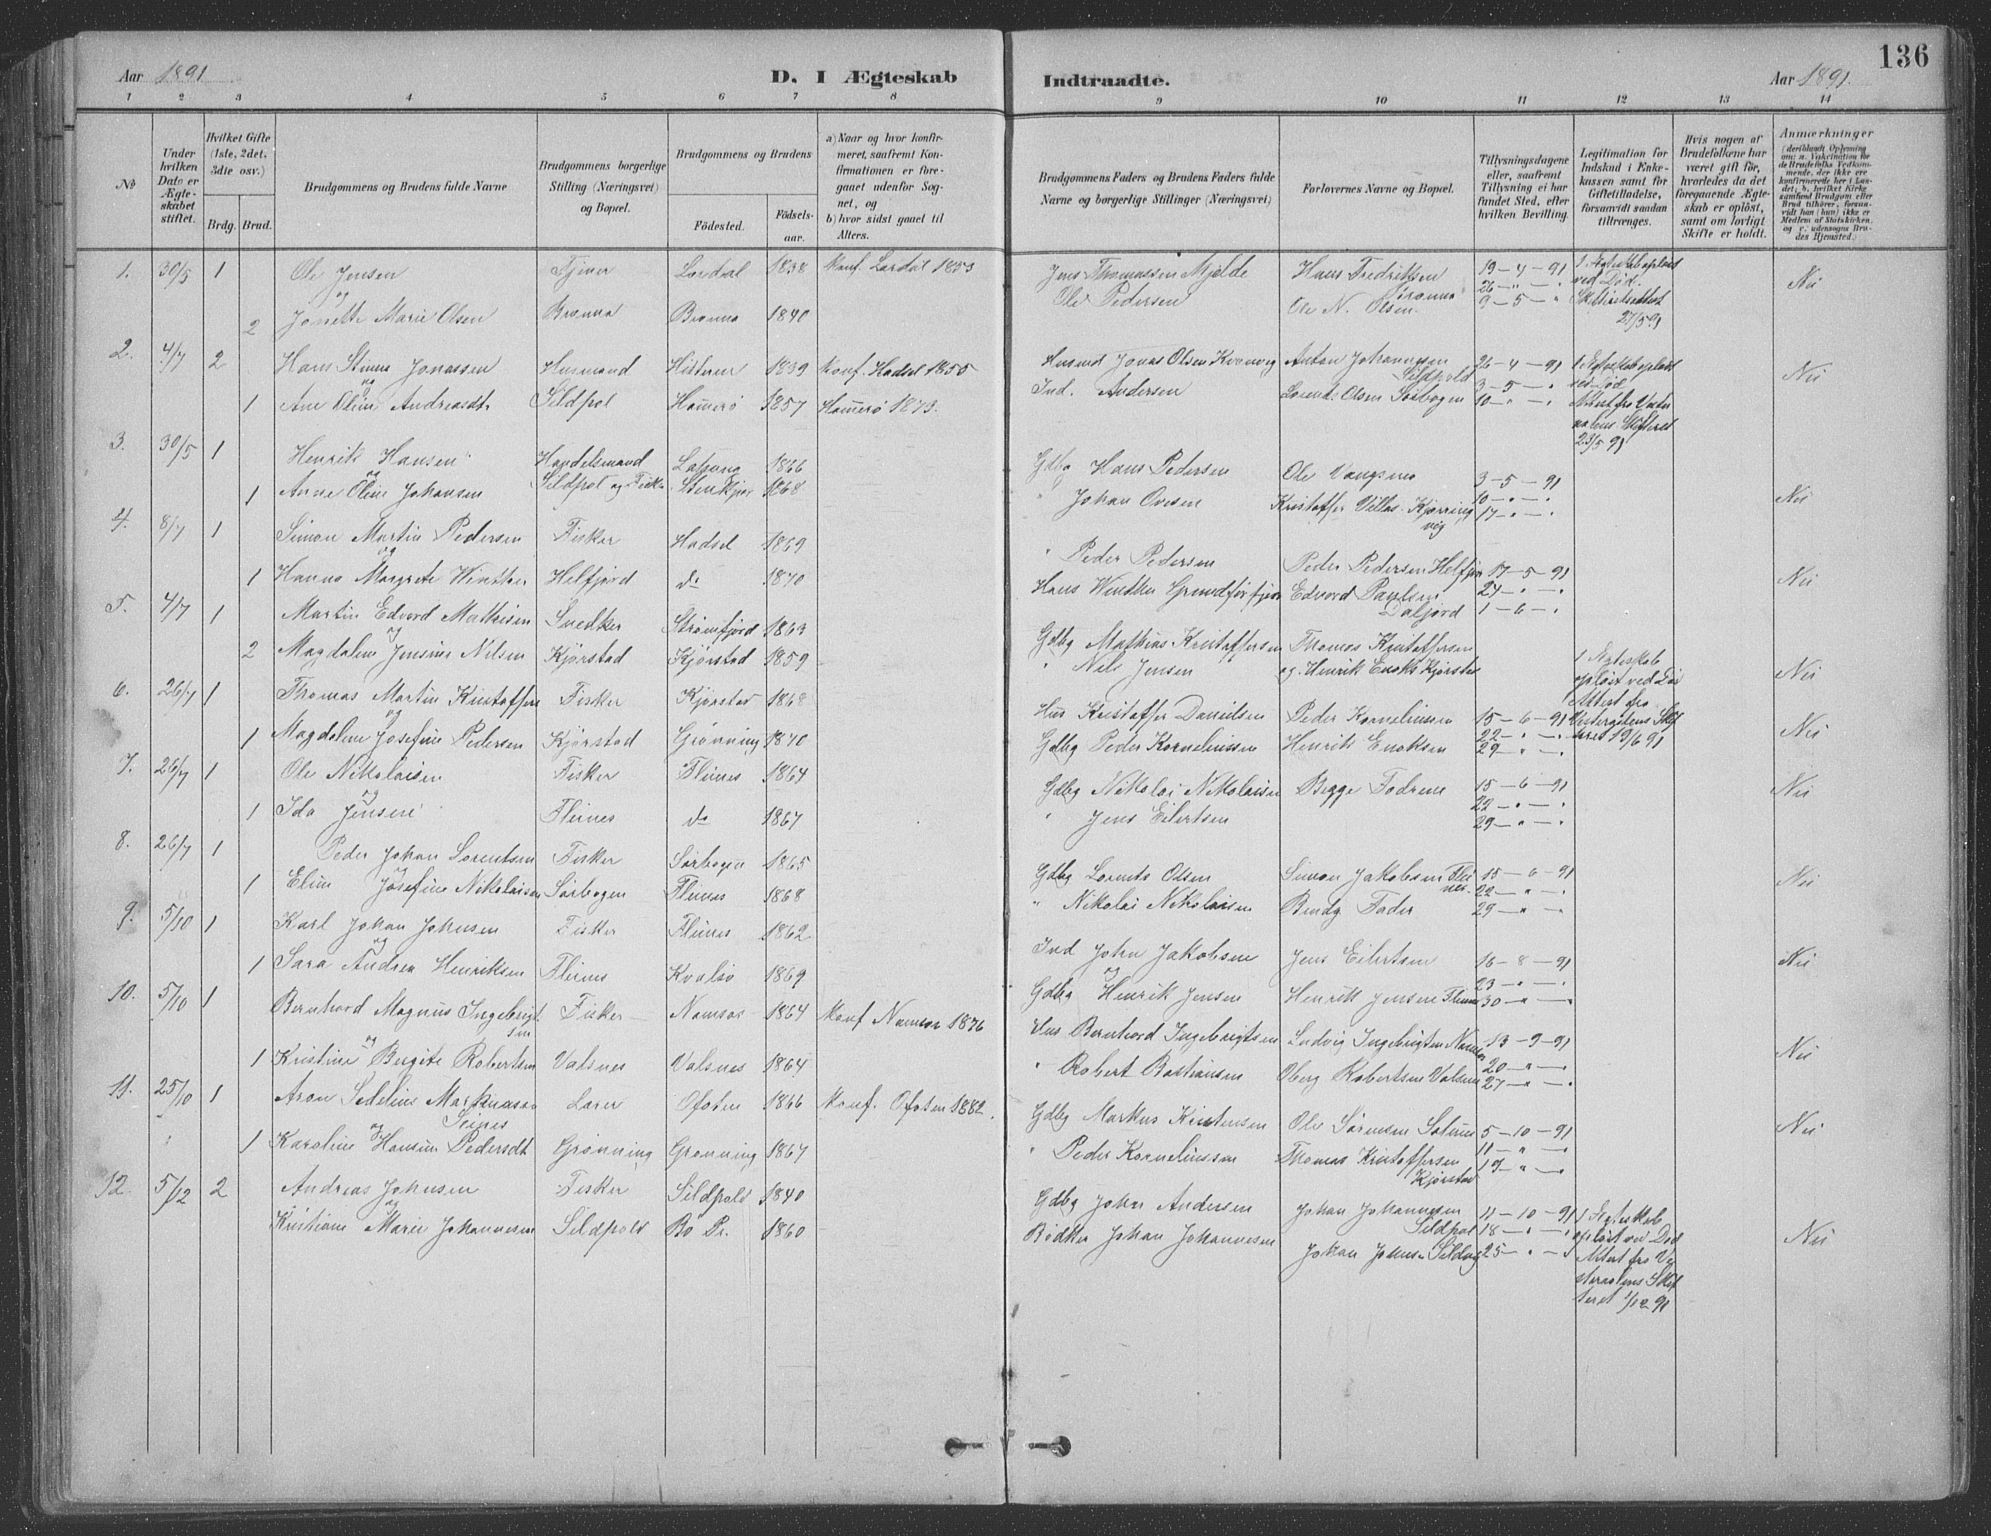 136
Aar 1891
D. I Ægteskab
Indtraadte.
Aar 1891.
1 2 3 4 5 6 7 8 9 10 11 12 13 14
No
Under hvilken Dato er Ægteskabet stiftet.
Hvilket Gifte (1ste, 2det, 3die osv.)
Brdg. Brud.
Brudgommens og Brudens fulde Navne
Brudgommens borgerlige Stilling (Næringsvei) og Bopæl.
Brudgommens og Brudens
Fødested.
Fødselsaar.
a) Naar og hvor konfirmeret, saafremt Konfirmationen er foregaaet udenfor Sognet, og
b) hvor sidst gaaet til Alters.
Brudgommens Faders og Brudens Faders fulde Navne og borgerlige Stillinger (Næringsvei)
Forlovernes Navne og Bopæl.
Tillysningsdagene eller, saafremt Tillysning ei har fundet Sted, efter hvilken Bevilling.
Legitimation for Indskud i Enkekassen samt for Giftetilladelse, forsaavidt saadan tiltrænges.
Hvis nogen af Brudefolkene har været gift før, hvorledes da det foregaaende Ægteskab er opløst, samt om lovligt Skifte er holdt.
Anmærkninger
1. 30/5 1 Ole Jensen Tjener Lærdal 1838 Konf. Lærdal 1853 Jens Thomassen Mjelde Hans Fredriksen 19-4-91 1 Ægteskab opløst Nei
og
2 Jonette Marie Olsen Brønnø Brønnø 1840 Ole Pedersen Ole N. Olsen 9-5-" Skifteattest 27/5 91
2. 4/7 2 Hans Jonassen Husmand 1839 Konf. Hadsel 1855 Husmd Jonas Olsen Anton Johannesen Sildpold 26-4-91 1 Ægteskab opløst ved Død Nei
1 Ane Oline Andreasdt Sildpol Hamerø 1857 Hamerø 1873. Ind. Andersen Lorents Olsen Sørbogen 3-5-" 10-"-" Attest fra Vesteraalens Skifteret 23/5 91
3. 30/5 1 Henrik Hansen Handelsmand 1866 Gdbg Hans Pedersen Ole 3-5-91
og
1 Anne Oline Johansen Sildpol og Fisker Stenkjær 1868 " Johan Ovesen Kristoffer Villas. Kjørringvig 10-"-" 17-"-" Nei
4. 8/7 1 Simon Martin Pedersen Fisker Hadsel 1869 " Peder Pedersen Peder Pedersen Helfjor 17-5-91
og
1 Hanna Margrete Winther Helfjord do 1870 Hans Winther Edvard Paulsen Daljord 24-"-" 1-6-" Nei
5. 4/7 1 Martin Edvard Mathisen Snedker Strømfjord 1863 Gdbg Mathias Kristoffersen Thomas Kristoffersen
og
2 Magdalene Jensine Nilsen Kjørstad Kjørstad 1859 " Nils Jensen og Henrik Enoks Kjørstad 1 Ægteskab opløst ved Død Attest fra Skifteret 19/6 91 Nei
6. 26/7 1 Thomas Martin Kristoffersen Fisker Kjørstad 1868 Hus Kristoffer Danielsen Peder Korneliussen 15-6-91
og
1 Magdalene Josefine Pedersen Kjørstad Grønning 1870 Gdbg Peder Korneliussen Henrik Enoksen 22-"-" 29-"-" Nei
7. 26/7 1 Ole Nikolaisen Fisker Flines 1864 Gdbg Nikolai Nikolaisen Begge Fædrene 15-6-91
og
1 Ida Jensen Flines do 1867 " Jens Eilertsen 22-"-" 29-"-" Nei
8. 26/7 1 Peder Johan Lorentsen Fisker Sørbogen 1865 Gdbg Lorents Olsen Simon Jakobsen Flines 15-6-91
1 Elim Josefine Nikolaisen Sørbogen Flines 1868 " Nikolai Nikolaisen Fader 22-"-" 29-"-" Nei
9. 5/10 1 Karl Johan Johnsen Fisker Flines 1862 Ind John Jakobsen Jens Eilertsen 16-8-91
og
1 Sara Andrea Henriksen Flines Kvalsø 1869 Gdbg Henrik Jensen Henrik Jensen Flines 23-"-" 30-"-" Nei
10. 5/10 1 Bernhard Magnus Ingebrigtsen Fisker Namsos 1864 Konf Namsos 1876 Hus Bernhard Ingebrigtsen Ludvig Ingebrigtsen Namsos 13-9-91
og
1 Kristine Bergite Robertsen Valsnes Valsnes 1864 " Robert Bastiansen Oberg Robertsen Valsnes 20-"-" 27-"-" Nei
11. 25/10 1 Aron Sedelius Markussen Seines Lærer Ofoten 1866 Konf. Ofoten 1882. Gdbg Markus Kristensen Ole Sørensen 5-10-91
og
1 Karoline Hansine Pedersdt Grønning Grønning 1867 " Peder Korneliussen Thomas Kristoffersen Kjørstad 11-"-" 19-"-" Nei
12. 5/12 2 Andreas Johnsen Fisker Sildpold 1840 Gdbg John Andersen Johan Johannesen Sildpol 11-10-91 1 Ægteskab opløst ved Død
og
Kristiane Marie Johannesen Sildpold Bø Pr. 1860 Bødker Johan Johannesen Johan Johnsen 18-"-" 25-"-" Attest fra Vesteraalens Skifteret 1/12 91 Nei